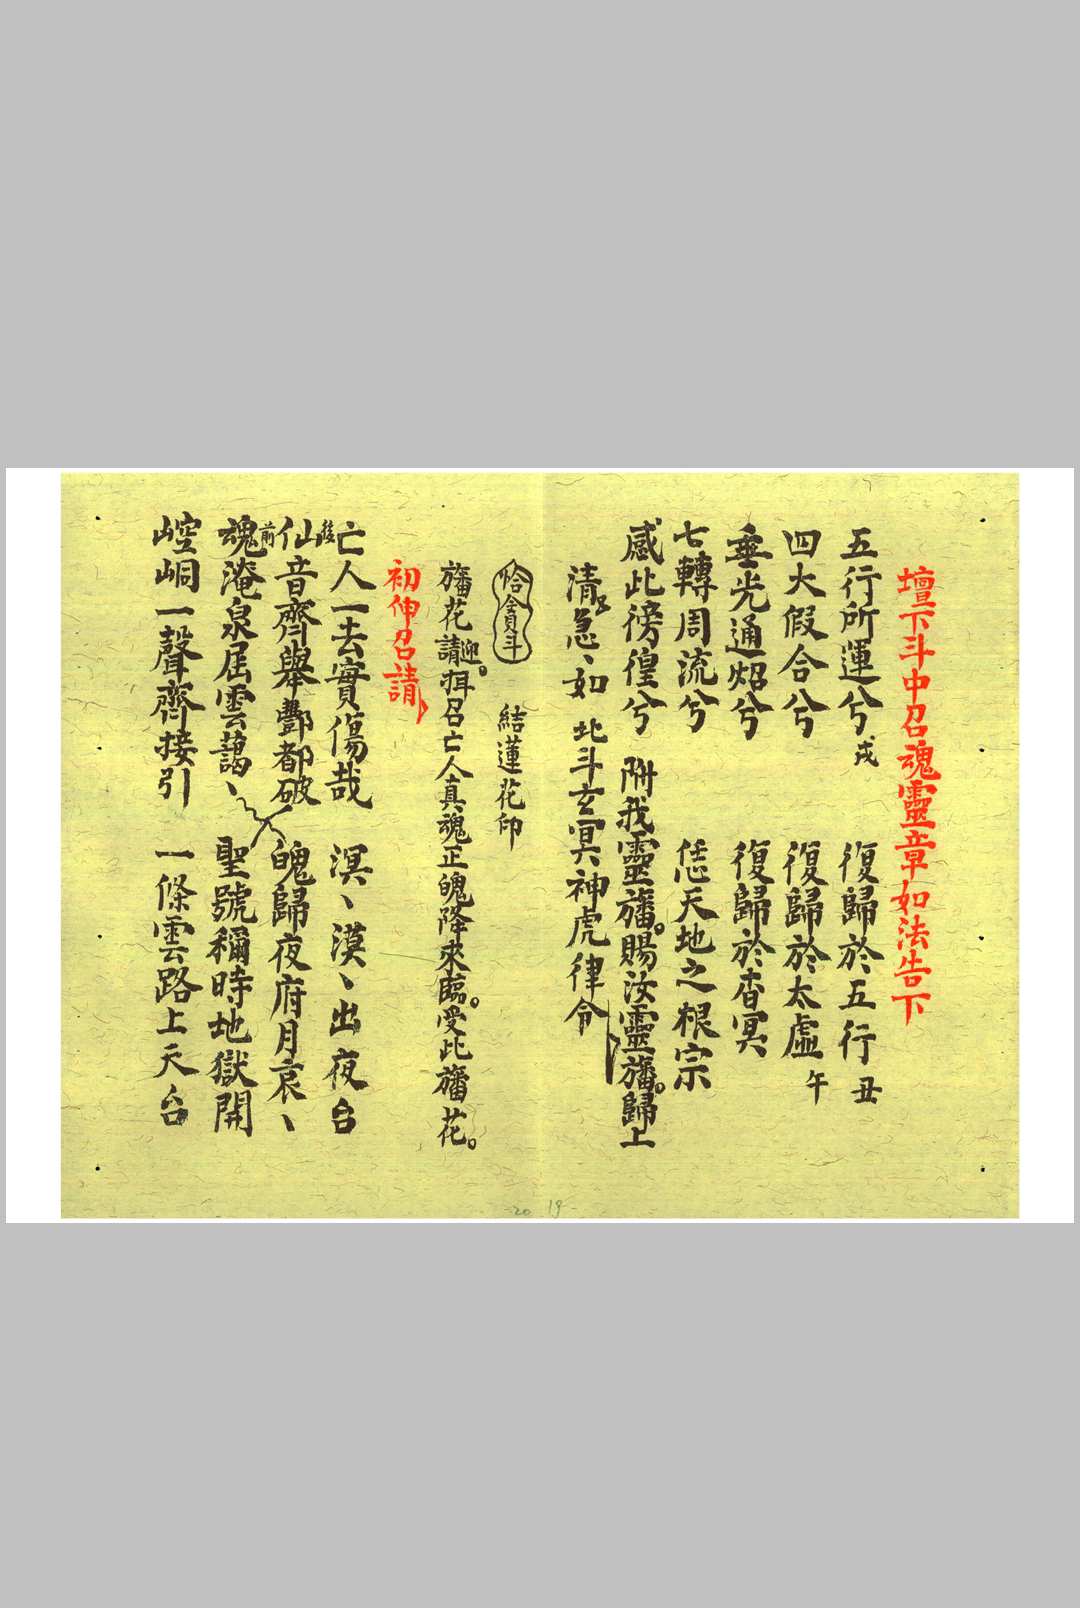 壇下斗中召魂靈章如法告下
五行所運兮戌 復歸於五行丑
四大假合兮 復歸於太虛午
垂光通炤兮 復歸於杳冥
七轉周流兮 恁天地之根宗
感此徬徨兮 附我靈旛。賜汝靈旛。歸上
清。急、如 北斗玄冥神虎律令
貪斗 結蓮花印
旛花請迎。揖召亡人真魂正魄降來臨。受此旛花。
初伸召請
亡人一去實傷哉 溟、漠、出夜台
後仙音齊舉酆都破 魄歸夜府月哀、
前魂淹泉屈雲藹、 聖號稱時地獄開
崆峒一聲齊接引 一條雲路上天台
20 19